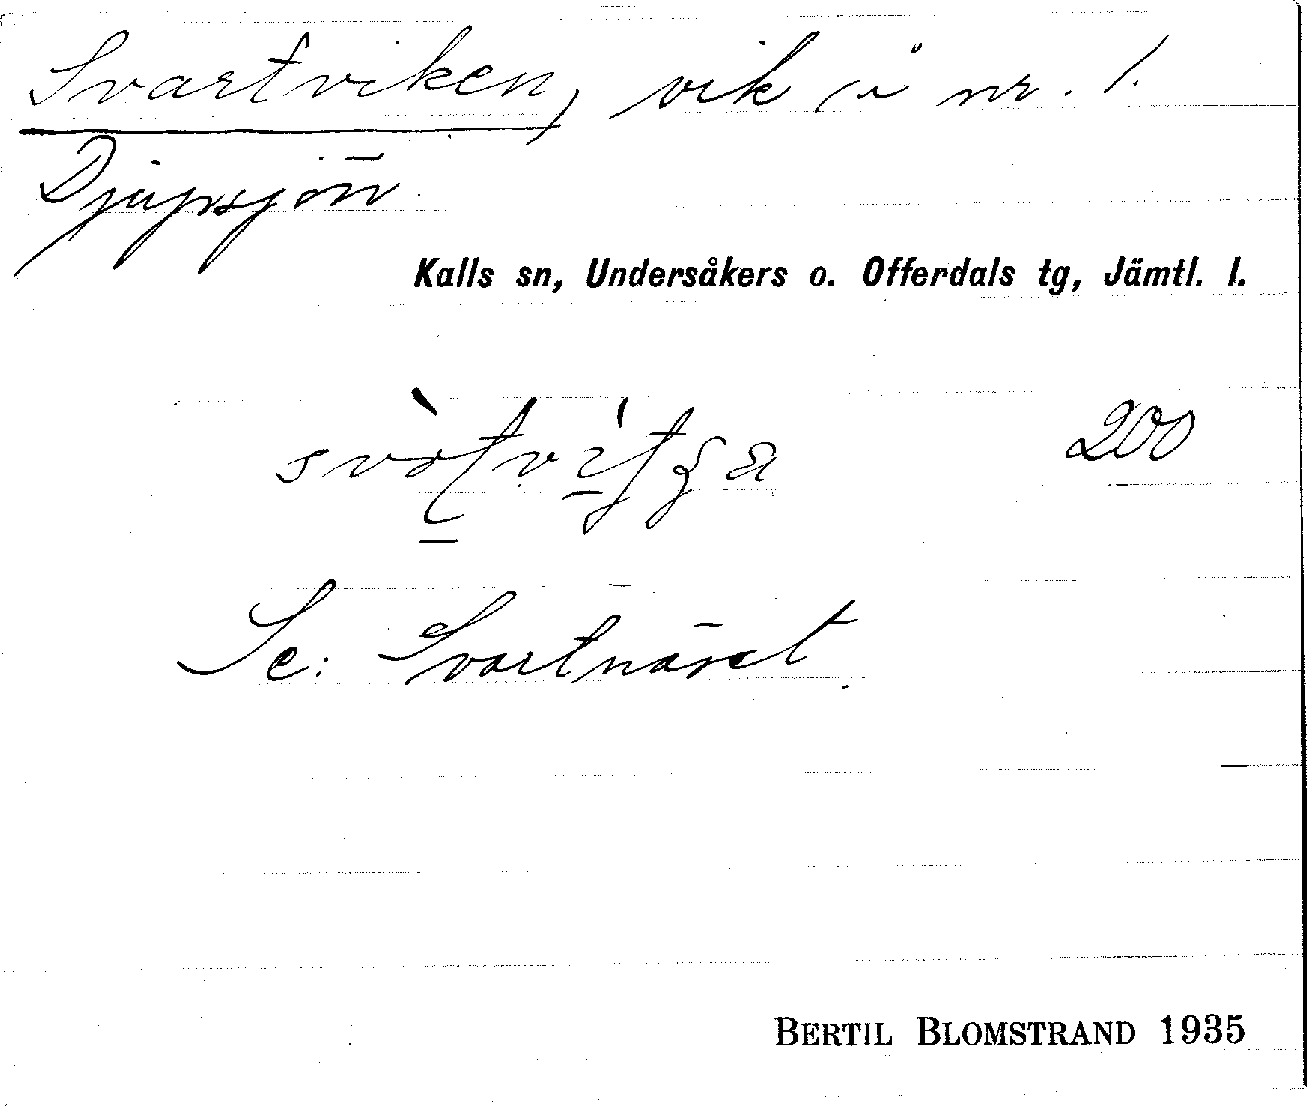 Svartviken, vik i nr. 1.
Djupsjön
Kalls sn, Undersåkers o. Offerdals tg, Jämtl. l.
200
Se: Svartnäset.
BERTIL BLOMSTRAND 1935